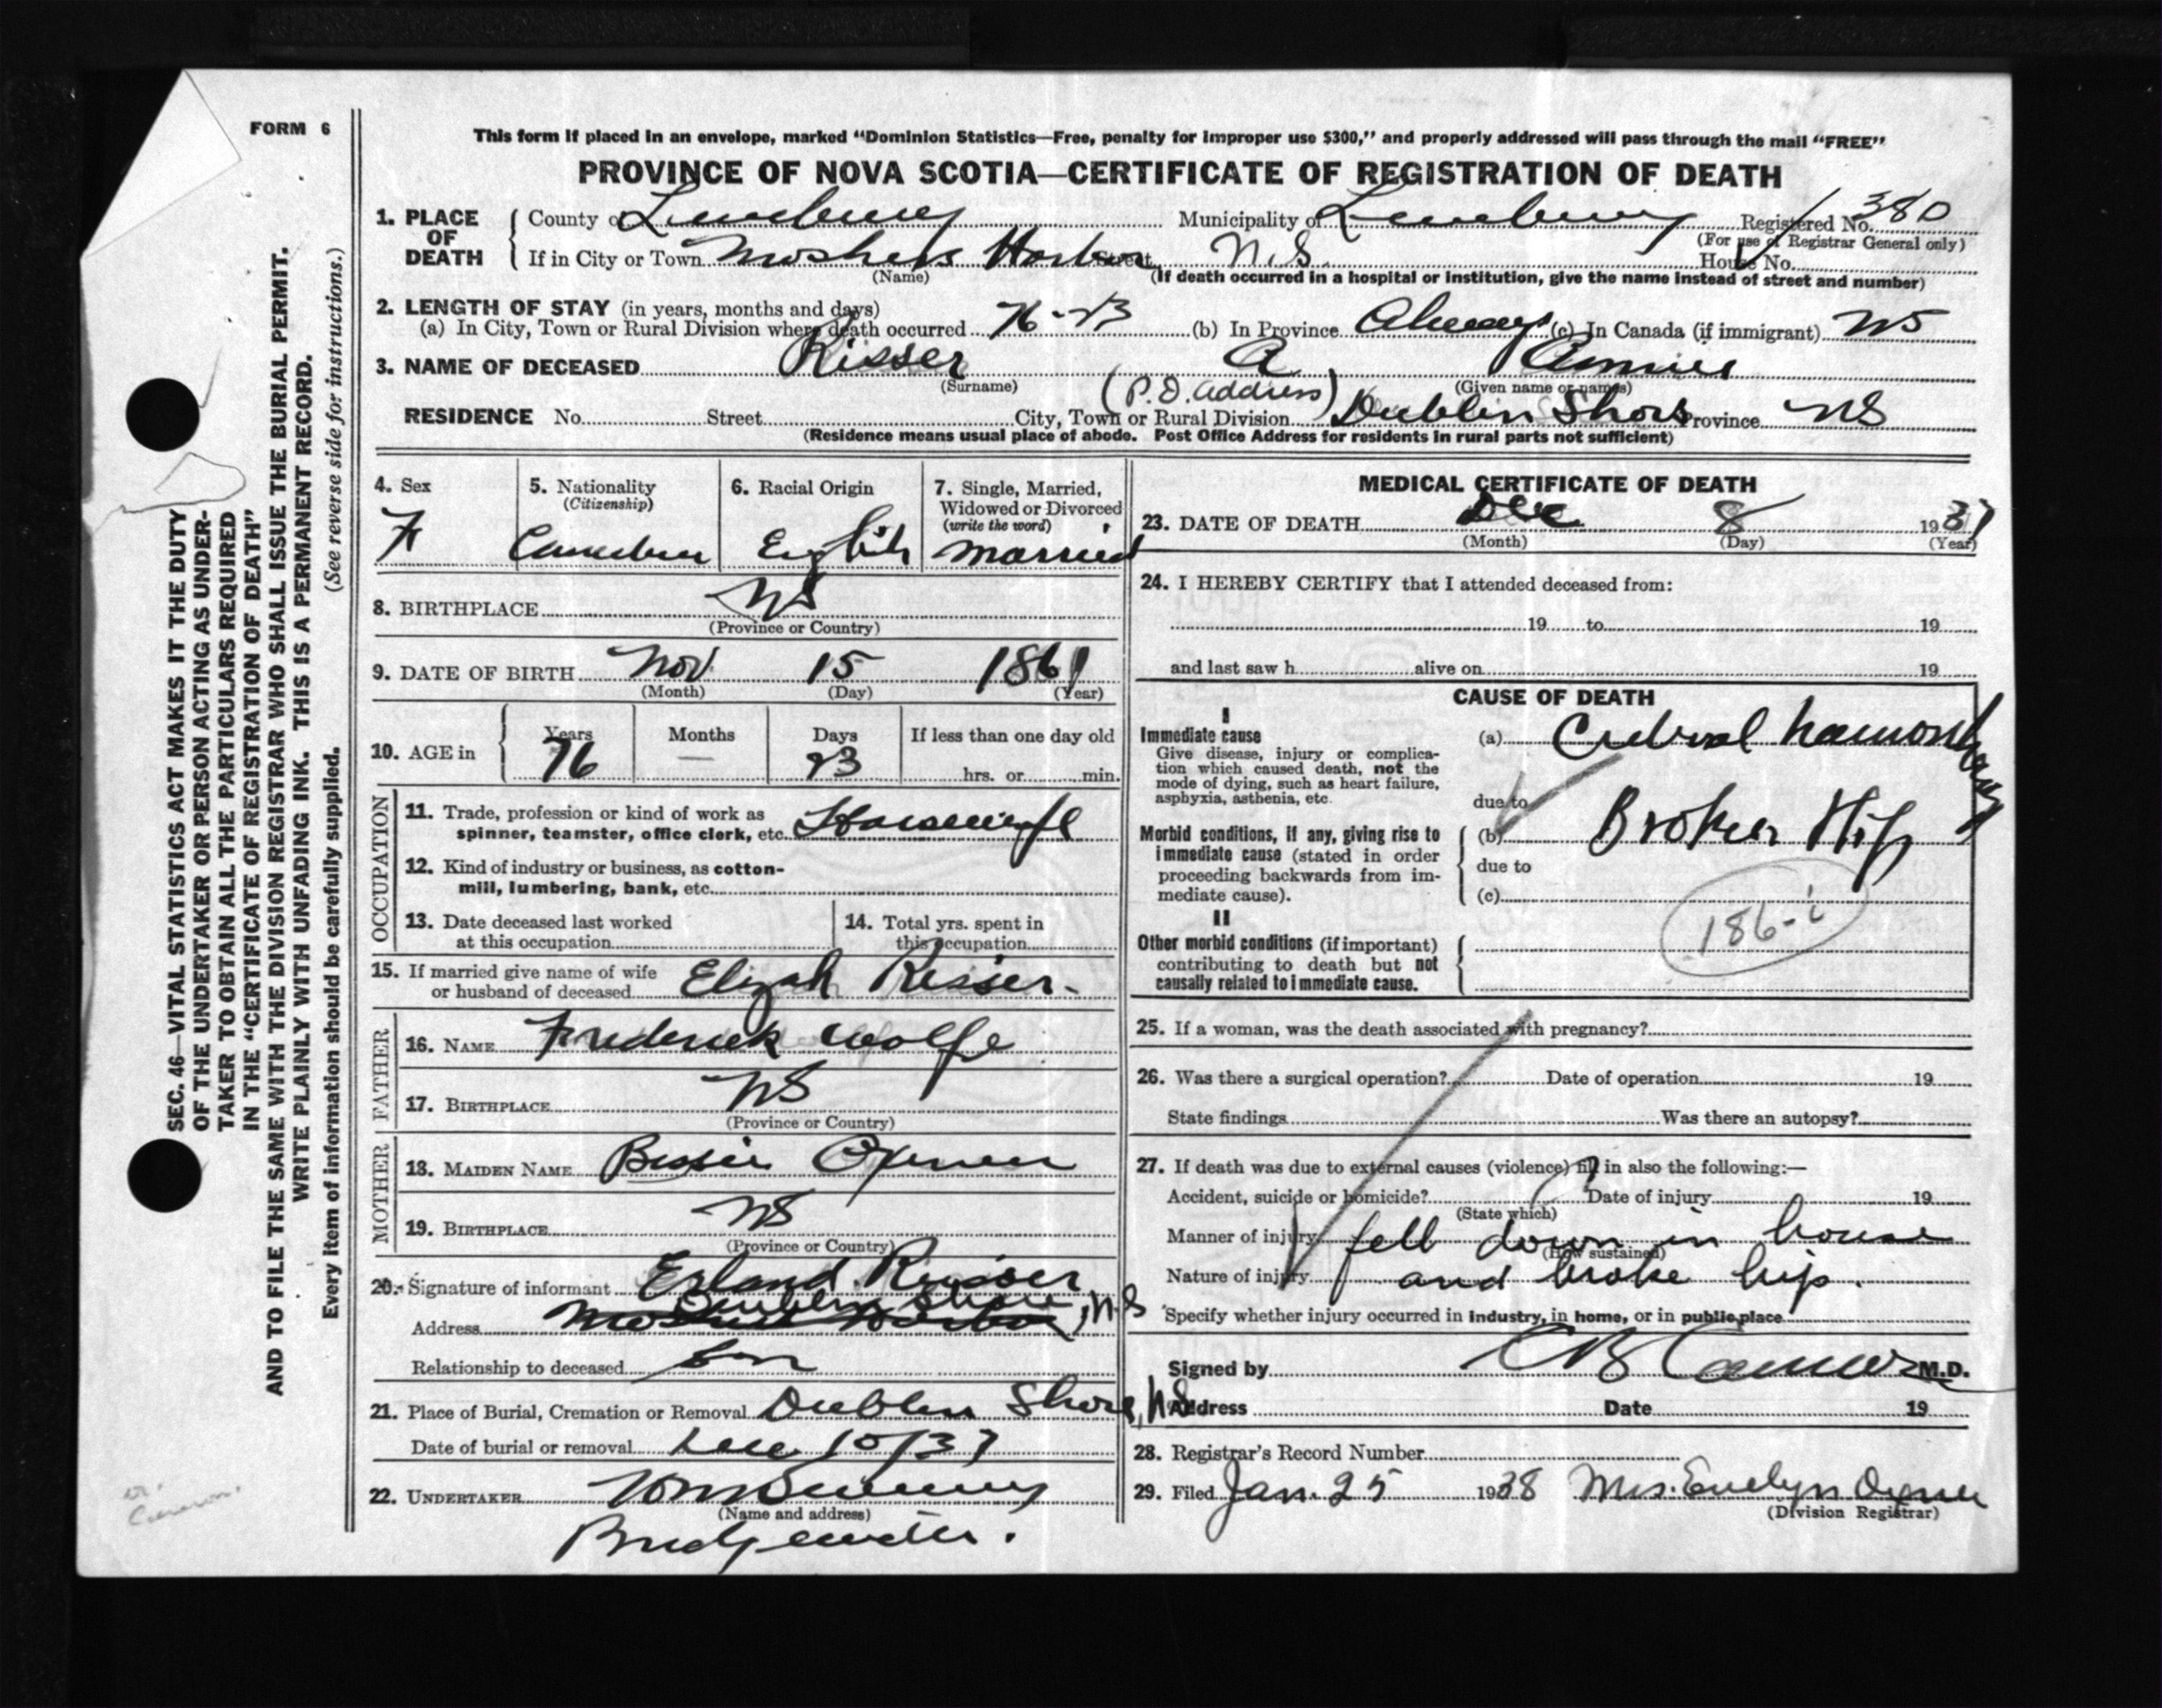 FORM 6
This form if placed in an envelope, marked "Dominion Statistics—Free, penalty for improper use $300," and properly addressed will pass through the mail "FREE"
PROVINCE OF NOVA SCOTIA—CERTIFICATE OF REGISTRATION OF DEATH
1. PLACE OF DEATH County of Lunenburg Municipality of Lunenburg Registered No. 380
(For use of Registrar General only)
If in City or Town Moshers Harbor Street N.S. House No.
(Name) (If death occurred in a hospital or institution, give the name instead of street and number)
2. LENGTH OF STAY (in years, months and days)
(a) In City, Town or Rural Division where death occurred 76-23 (b) In Province Always (c) In Canada (if immigrant) NS
3. NAME OF DECEASED Risser A Annie
(Surname) (P.O. address) (Given name or names)
RESIDENCE No. Street City, Town or Rural Division Dublin Shore Province NS
(Residence means usual place of abode. Post Office Address for residents in rural parts not sufficient)
4. Sex F
5. Nationality (Citizenship) Canadian
6. Racial Origin English
7. Single, Married, Widowed or Divorced (write the word) married
8. BIRTHPLACE NS
(Province or Country)
9. DATE OF BIRTH Nov 15 1861
(Month) (Day) (Year)
10. AGE in Years 76 Months — Days 23 If less than one day old hrs. or min.
OCCUPATION
11. Trade, profession or kind of work as spinner, teamster, office clerk, etc. Housewife
12. Kind of industry or business, as cotton-mill, lumbering, bank, etc.
13. Date deceased last worked at this occupation
14. Total yrs. spent in this occupation
15. If married give name of wife or husband of deceased Elijah Risser-
FATHER
16. NAME Frederick Wolfe
17. BIRTHPLACE NS
(Province or Country)
MOTHER
18. MAIDEN NAME Bessie Oxner
19. BIRTHPLACE NS
(Province or Country)
20. Signature of informant Erland Risser
Address Dublin Shore, N.S
Relationship to deceased Son
21. Place of Burial, Cremation or Removal Dublin Shore, NS
Date of burial or removal Dec 10/37
22. UNDERTAKER
(Name and address)
Bridgewater.
MEDICAL CERTIFICATE OF DEATH
23. DATE OF DEATH Dec 8 1937
(Month) (Day) (Year)
24. I HEREBY CERTIFY that I attended deceased from:
19 to 19
and last saw h alive on 19
CAUSE OF DEATH
I
Immediate cause
Give disease, injury or complication which caused death, not the mode of dying, such as heart failure, asphyxia, asthenia, etc.
(a) Cerebral haemorrhage
due to
Morbid conditions, if any, giving rise to immediate cause (stated in order proceeding backwards from immediate cause).
(b) Broken Hip
due to
(c)
186-i
II
Other morbid conditions (if important) contributing to death but not causally related to immediate cause.
25. If a woman, was the death associated with pregnancy?
26. Was there a surgical operation? Date of operation 19
State findings Was there an autopsy?
27. If death was due to external causes (violence) fill in also the following:—
Accident, suicide or homicide? Date of injury 19
(State which)
Manner of injury fell down in house
(How sustained)
Nature of injury and broke hip.
Specify whether injury occurred in industry, in home, or in public place
Signed by M.D.
Address Date 19
28. Registrar's Record Number
29. Filed Jan. 25 1938 Mrs. Evelyn Oxner
(Division Registrar)
SEC. 46—VITAL STATISTICS ACT MAKES IT THE DUTY
OF THE UNDERTAKER OR PERSON ACTING AS UNDER-
TAKER TO OBTAIN ALL THE PARTICULARS REQUIRED
IN THE "CERTIFICATE OF REGISTRATION OF DEATH"
AND TO FILE THE SAME WITH THE DIVISION REGISTRAR WHO SHALL ISSUE THE BURIAL PERMIT.
WRITE PLAINLY WITH UNFADING INK. THIS IS A PERMANENT RECORD.
Every item of information should be carefully supplied. (See reverse side for instructions.)